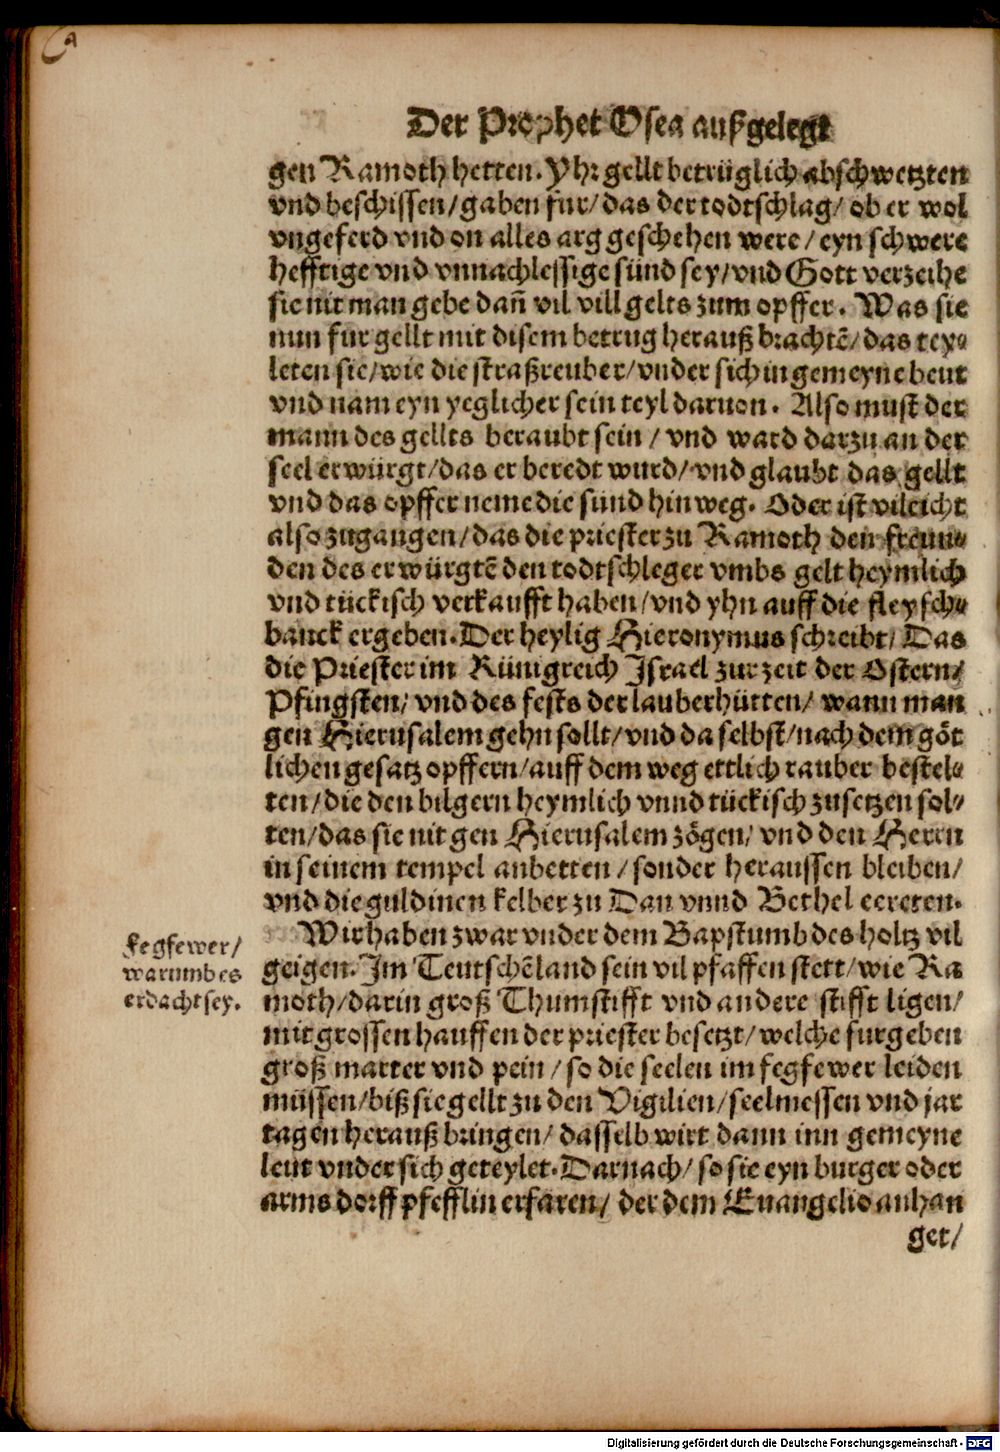 Der Prophet Osea außgelegt
gen Ramoth hetten. Yhr gellt betrüglich abschwetzten
vnd beschissen/gaben für/das der todtschlag/ob er wol
vngeferd vnd on alles arg geschehen were/eyn schwere
hefftige vnd vnnachlessige sünd sey/vnd Gott verzeihe
sie nit man gebe dañ vil vill gelts zum opffer. Was sie
nun fur gellt mit disem betrug herauß brachtẽ/das tey⸗
leten sie/wie die straßreuber/vnder sich in gemeyne beut
vnd nam eyn yeglicher sein teyl daruon. Also must der
mann des gellts beraubt sein/vnd ward darzu an der
seel erwürgt/das er beredt wurd/vnd glaubt das gellt
vnd das opffer neme die sünd hinweg. Oder ist vileicht
also zugangen/das die priester zu Ramoth den freun⸗
den des erwürgtẽ den todtschleger vmbs gelt heymlich
vnd tückisch verkaufft haben/vnd yhn auff die fleysch⸗
banck ergeben. Der heylig Hieronymus schreibt/Das
die Priester im Künigreich Israel zur zeit der Ostern/
Pfingsten/vnd des fests der lauberhütten/wann man
gen Hierusalem gehn sollt/vnd da selbst/nach dem göt
lichen gesatz opffern/auff dem weg ettlich rauber bestel⸗
ten/die den bilgern heymlich vnnd tückisch zusetzen sol⸗
ten/das sie nit gen Hierusalem zögen/vnd den Herrn
in seinem tempel anbetten/sonder heraussen bleiben/
vnd die guldinen kelber zu Dan vnnd Bethel eereten.
Wir haben zwar vnder dem Bapstumb des holtz vil
Fegfewer/
warumb es
erdacht sey.
geigen. Im Teutschẽland sein vil pfaffen stett/wie Ra
moth/darin groß Thumstifft vnd andere stifft ligen/
mit grossen hauffen der priester besetzt/welche furgeben
groß marter vnd pein/so die seelen im fegfewer leiden
müssen/biß sie gellt zu den Vigilien/seelmessen vnd jar
tagen herauß bringen/dasselb wirt dann inn gemeyne
leut vnder sich geteylet. Darnach/so sie eyn burger oder
arms dorff pfefflin erfaren/der dem Euangelio anhan
get/
Digitalisierung gefördert durch die Deutsche Forschungsgemeinschaft - DFG